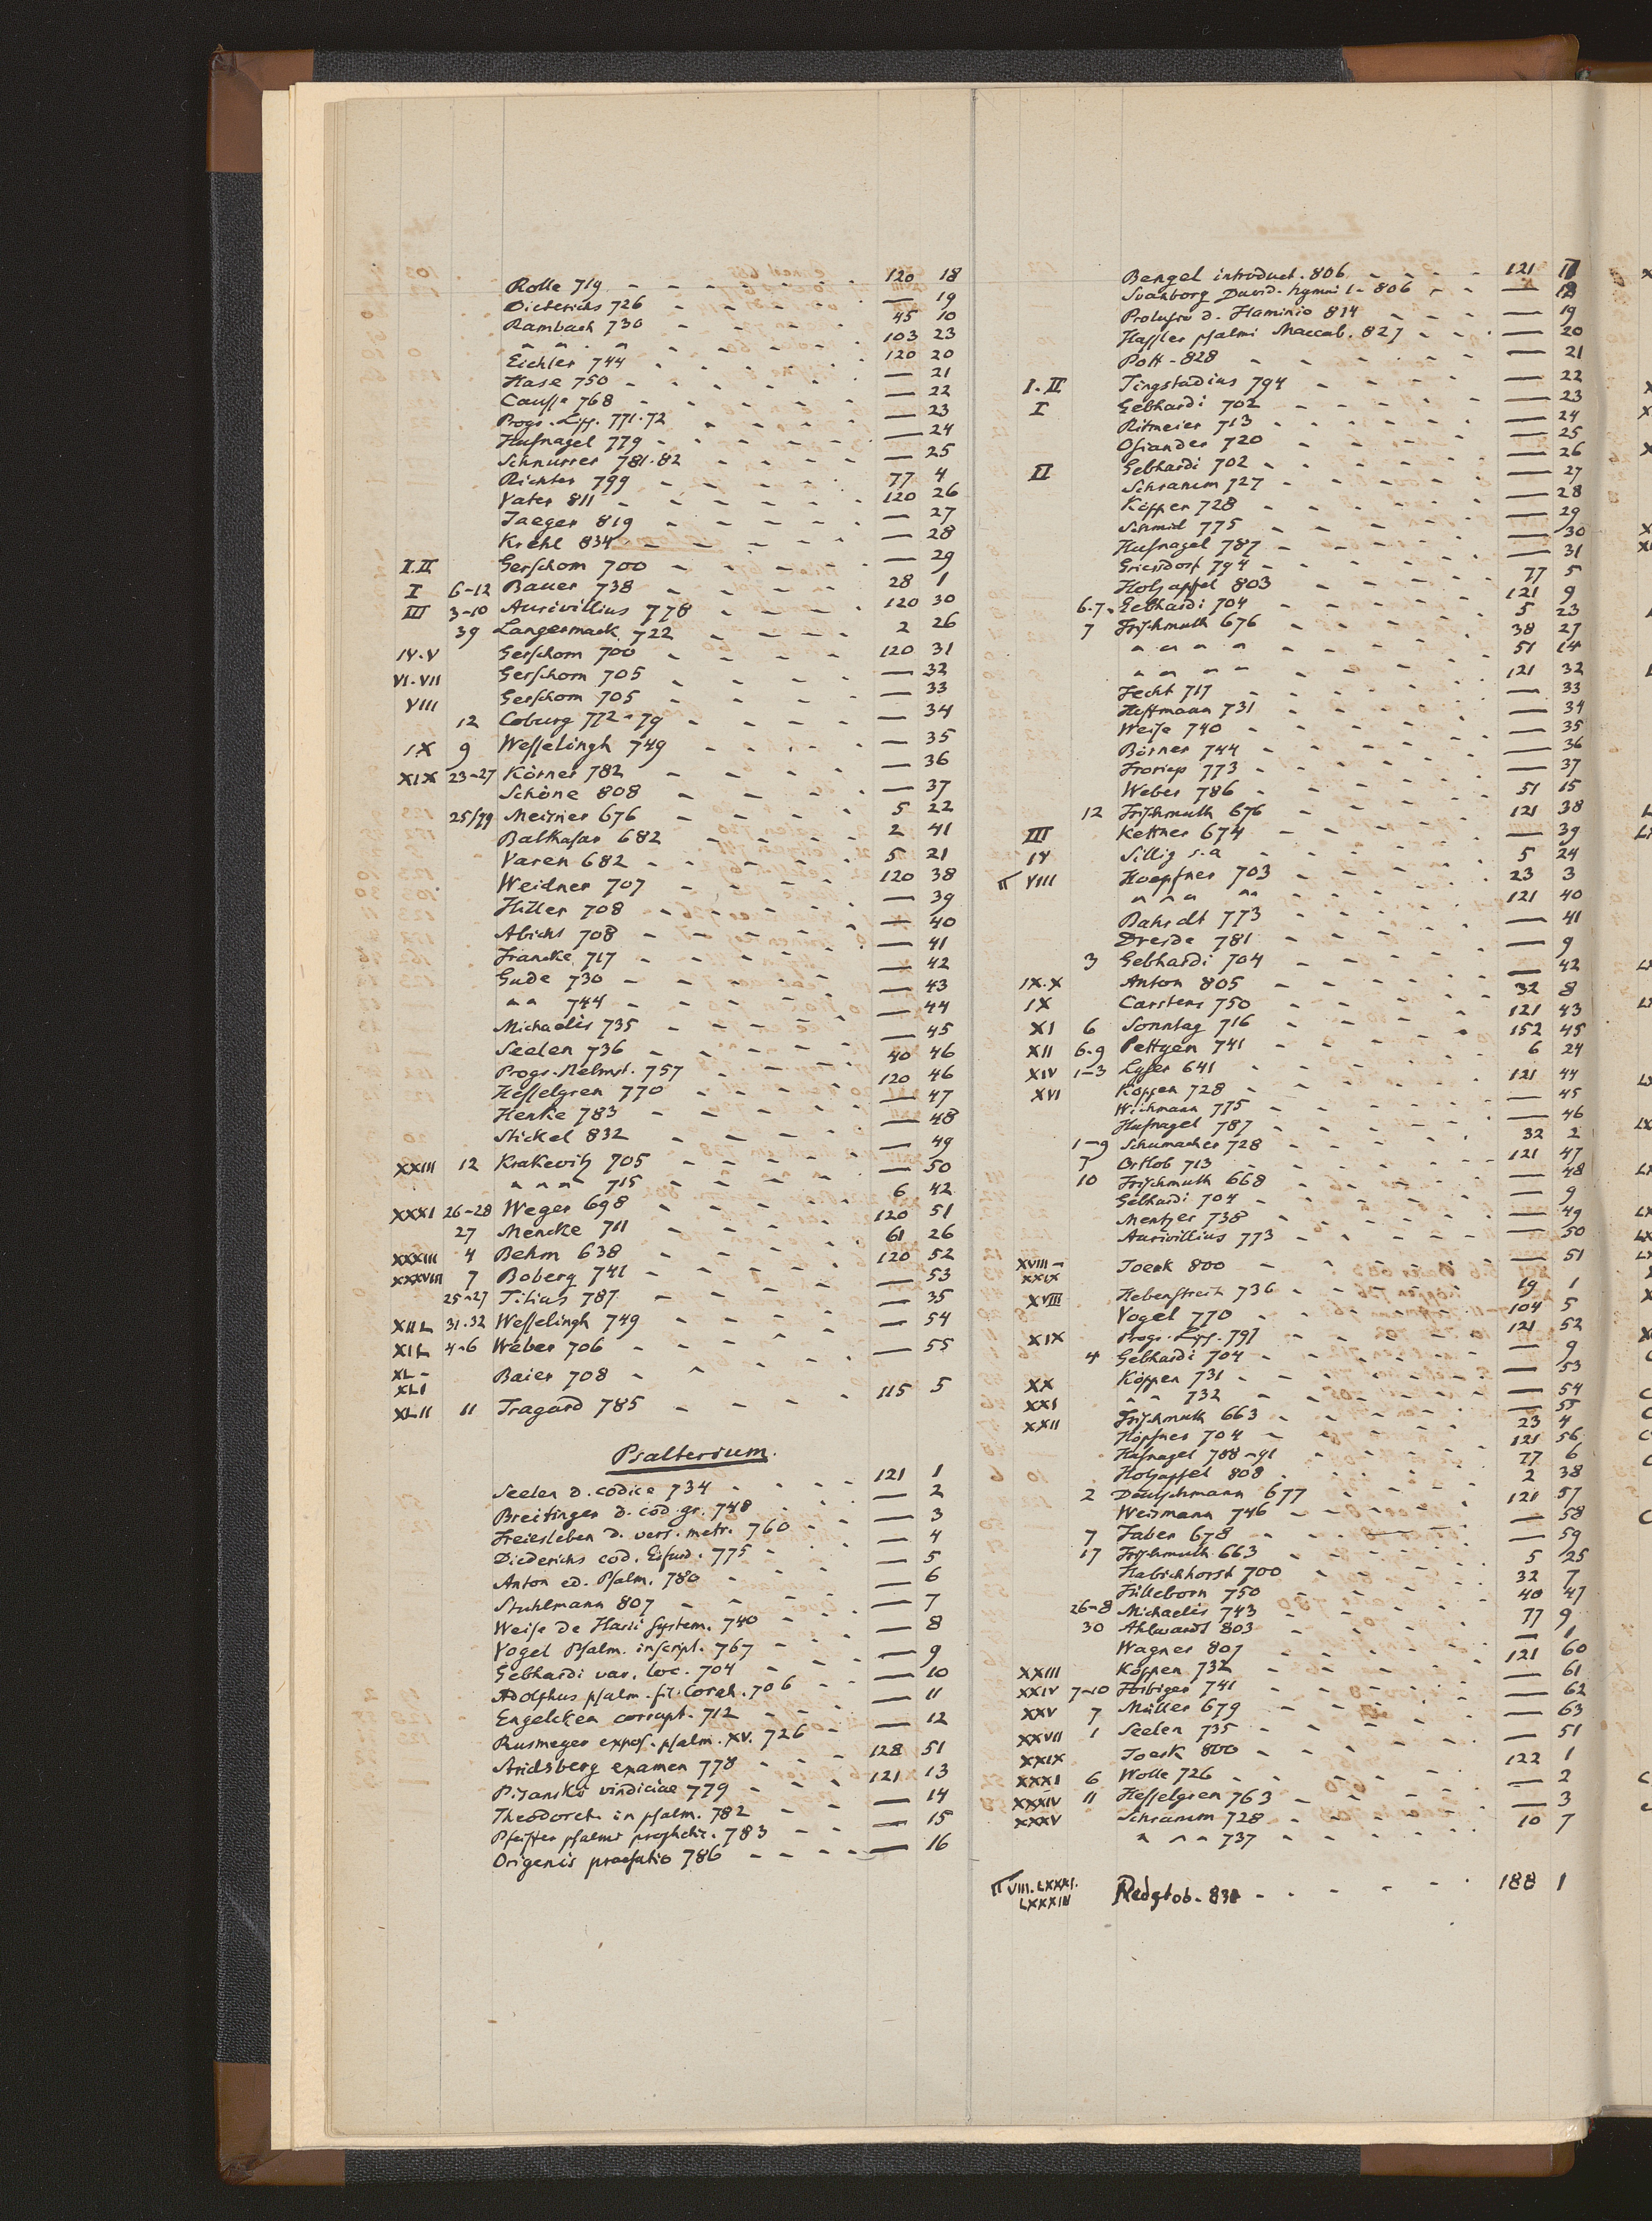 Rolle 719 - - - - - - 120 18
Dieterichs 726 - - - - - — 19
Rambach 730 - - - - - 45 10
" " " - - - - - 103 23
Eichler 744 - - - - - 120 20
Hase 750 - - - - - — 21
Causse 768 - - - - - — 22
Progr. Lpf. 771.72 - - - - — 23
Hufnagel 779 - - - - - — 24
Schnurrer 781.82 - - - - — 25
Richter 799 - - - - - 77 4
Vater 811 - - - - - 120 26
Jaeger 819 - - - - - — 27
Krehl 834 - - - - - — 28
I.II Gerschom 700 - - - - - — 29
I 6-12 Bauer 738 - - - - - 28 1
III 3-10 Aurivillius 778 - - - - 120 30
39 Langermack 722 - - - - 2 26
IV.V Gerschom 700 - - - - - 120 31
VI.VII Gerschom 705 - - - - - — 32
VIII Gerschom 705 - - - - - — 33
12 Coburg 772-79 - - - - — 34
IX 9 Wesselingh 749 - - - - — 35
XIX 23-27 Körner 782 - - - - - — 36
Schöne 808 - - - - - — 37
25/29 Meisner 676 - - - - - 5 22
Balthasar 682 - - - - - 2 41
Varen 682 - - - - - 5 21
Weidner 707 - - - - - 120 38
Hiller 708 - - - - - — 39
Abicht 708 - - - - - — 40
Francke 717 - - - - - — 41
Gude 730 - - - - - — 42
" " 744 - - - - - — 43
Michaelis 735 - - - - - — 44
Seelen 736 - - - - - — 45
Progr. Helmst. 757 - - - - 40 46
Hesselgren 770 - - - - 120 46
Henke 783 - - - - - — 47
Stickel 832 - - - - - — 48
XXIII 12 Krakevitz 705 - - - - — 49
" " " 715 - - - - — 50
XXXI 26-28 Weger 698 - - - - - 6 42
27 Mencke 711 - - - - - 120 51
XXXIII 4 Behm 638 - - - - - 61 26
XXXVIII 7 Boberg 741 - - - - - 120 52
25-27 Titius 787 - - - - - — 53
XIIL 31.32 Wesselingh 749 - - - - — 35
XIL 4-6 Weber 706 - - - - - — 54
XL -
XLI Baier 708 - - - - - — 55
XLII 11 Tragard 785 - - - - 115 5
Psalterium.
Seelen d. codice 734 - - - - 121 1
Breitinger d. cod. gr. 748 - - - — 2
Freiesleben d. vers. metr. 760 - - — 3
Diederichs cod. Erfurd. 775 - - - — 4
Anton ed. Psalm. 780 - - - — 5
Stuhlmann 807 - - - - - — 6
Weise de Harii system. 740 - - - — 7
Vogel Psalm. inscript. 767 - - - — 8
Gebhardi var. loc. 704 - - - — 9
Adolphus psalm. fil. Corah. 706 - - — 10
Engelcken corrupt. 712 - - - — 11
Rusmeyer expos. psalm. XV. 726 - — 12
Aridsberg examen 778 - - - 128 51
Pisanski vindiciae 779 - - - 121 13
Theodoret. in psalm. 782 - - - — 14
Pfeiffer psalmi prophetic. 783 - - — 15
Origenis praefatio 786 - - - - — 16
Bengel introduct. 806 - - - - 121 17
Svanborg David. hymni 1 - 806 - - — 18
Prolusio d. Flaminio 814 - - - — 19
Hassler psalmi Maccab. 827 - - - — 20
Pott - 828 - - - - - — 21
I.II Tingstadius 794 - - - - — 22
I Gebhardi 702 - - - - - — 23
Ritmeier 713 - - - - - — 24
Osiander 720 - - - - - — 25
II Gebhardi 702 - - - - - — 26
Schramm 727 - - - - - — 27
Köppen 728 - - - - - — 28
Schmid 775 - - - - - — 29
Hufnagel 787 - - - - - — 30
Griesdorf 794 - - - - - — 31
Holzapfel 803 - - - - - 77 5
6.7. Gebhardi 704 - - - - - 121 9
7 Frischmuth 676 - - - - - 5 23
" " " " - - - - 38 27
" " " " - - - - 51 14
Fecht 717 - - - - - 121 32
Hoffmann 731 - - - - - — 33
Weise 740 - - - - - — 34
Börner 744 - - - - - — 35
Froriep 773 - - - - - — 36
Weber 786 - - - - - — 37
12 Frischmuth 676 - - - - 51 15
III Kettner 674 - - - - - 121 38
IV Sillig s.a - - - - - — 39
VIII Hoepfner 703 - - - - 5 24
" " " " - - - - 23 3
Bahrdt 773 - - - - - 121 40
Dresde 781 - - - - - — 41
3 Gebhardi 704 - - - - - — 9
IX.X Anton 805 - - - - - — 42
IX Carstens 750 - - - - - 32 8
XI 6 Sonntag 716 - - - - - 121 43
XII 6.9 Pettgen 741 - - - - - 152 45
XIV 1-3 Lyser 641 - - - - - 6 24
XVI Köppen 728 - - - - - 121 44
Wichmann 775 - - - - - — 45
Hufnagel 787 - - - - - — 46
1-9 Schumacher 728 - - - - 32 2
7 Ortlob 713 - - - - - 121 47
10 Frischmuth 668 - - - - — 48
Gebhardi 704 - - - - - — 9
Mentzer 738 - - - - - — 49
Aurivillius 773 - - - - — 50
XVIII -
XXIX Joerk 800 - - - - - — 51
XVIII Hebenstreit 736 - - - - 19 1
Vogel 770 - - - - - 104 5
XIX Progr. Lps. 797 - - - - 121 52
4 Gebhardi 704 - - - - - — 9
XX Köppen 731 - - - - - — 53
XXI " " 732 - - - - - — 54
XXII Frischmuth 663 - - - - — 55
Höpfner 704 - - - - - 23 4
Hufnagel 788-91 - - - - 121 56
Holzapfel 808 - - - - - 77 6
2 Deutschmann 677 - - - - 2 38
Weismann 746 - - - - - 121 57
7 Faber 678 - - - - - — 58
17 Frischmuth 663 - - - - — 59
Habichhorst 700 - - - - 5 25
Fülleborn 750 - - - - - 32 7
26-8 Michaelis 743 - - - - 40 47
30 Ahlwardt 803 - - - - 77 9
Wagner 807 - - - - - — 1
XXIII Köppen 732 - - - - - 121 60
XXIV 7-10 Forbiger 741 - - - - — 61
XXV 7 Müller 679 - - - - - — 62
XXVII 1 Seelen 735 - - - - - — 63
XXIX Joerk 800 - - - - - — 51
XXXI 6 Wolle 726 - - - - - 122 1
XXXIV 11 Hesselgren 763 - - - - — 2
XXXV Schramm 728 - - - - - — 3
" " " 737 - - - - - 10 7
VIII. LXXXI.
LXXXIV Redslob - 831 - - - - - 188 1